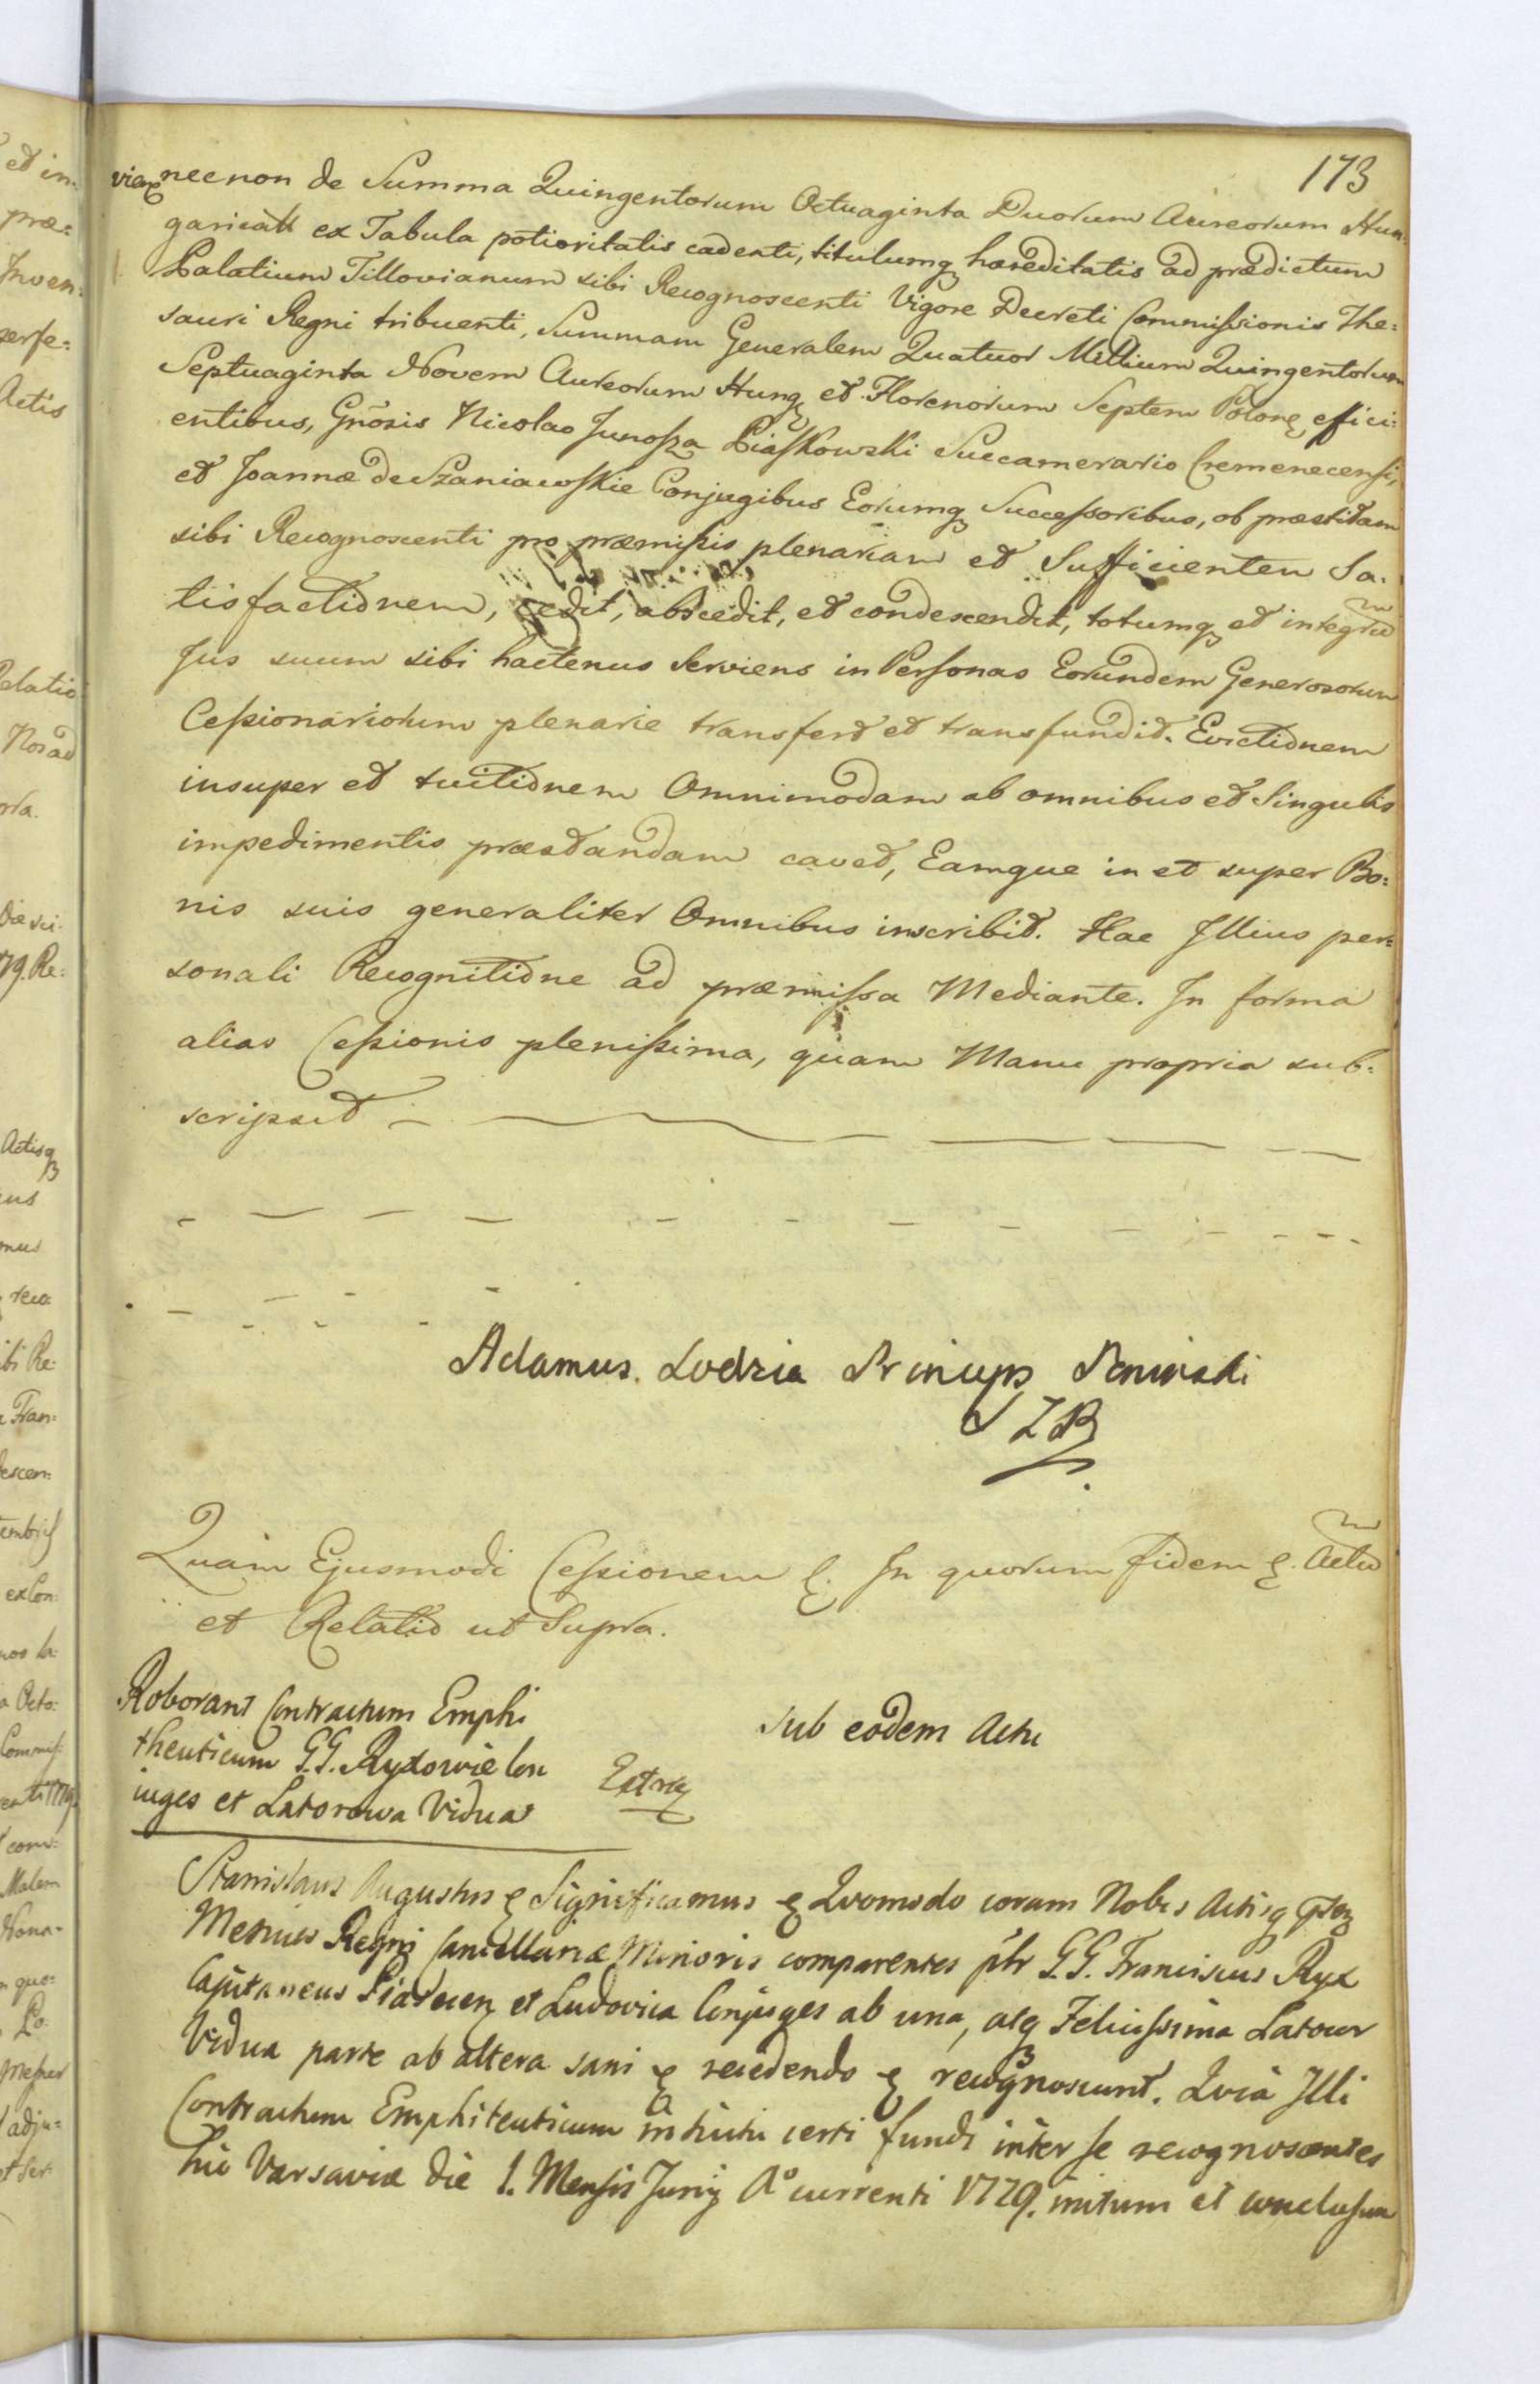 173
viae necnon de Summa Quingentorum Octuaginta Duorum Aureorum Hun:
garicali ex Tabula potioritatis cadenti, titulumq haereditatis ad praedictum
Palatium Tillovianum sibi Recognoscenti Vigore Decreti Commissionis The:
sauri Regni tribuenti, Summam Generalem Quatuor Millium Quingentorum
Septuaginta Novem Aureorum Hung et Florenorum Septem Polon effici:
entibus, Gnosis Nicolao Junosza Piaskowski Succamerario Cremenecensi,
et Joannae de Szaniawskie Conjugibus Eorumq Successoribus, ob praestitam
sibi Recognoscenti pro praemissis plenariam et Sufficientem Sa:
tisfactionem, cedit, abscedit, et condescendit, totumq et integru
Jus suum sibi hactenus Serviens in Personas Eorundem Generosorum
Cessionariorum plenarie transfert et transfundit. Evictionem
insuper et tuitionem Omnimodam ab omnibus et Singulis
impedimentis praestandam cavet, Eamque in et super Bo:
nis suis generaliter Omnibus inscribit. Hac Illius per:
sonali Recognitione ad praemissa Mediante. In forma
alias Cessionis plenissima, quam Manu propria sub:
scripsit
Adamus. Lodzia Princeps Poninski
Quam Ejusmodi Cessionem &. In quorum fidem &. Actu
et Relatio ut Supra.
Roborant Contractum Emphi
theuticum G.G. Ryxowie Con
iuges et Latorowa Vidua
Extra
Sub eodem Actu
Stanislaus Augustus & Significamus & Quomodo coram Nobis Actisq
Metrices Regni Cancellariae Minoris comparentes G.G. Franciscus Ryx
Capitaneus Piasecen et Ludovica Conjuges ab una, atq Felicissima Latour
Vidua parte ab altera sani & recedendo & recognoscunt. Quia Illi
Contractum Emphiteuticum intuitu certi fundi inter se recognoscentes
hic Varsaviae die 1. Mensis Junij Ao currenti 1779. initum et conclusum